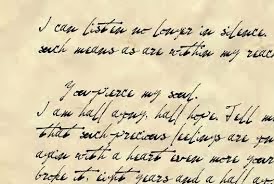 I can listen no longer in silence.
such means as are within my reac
You pierce my soul.
I am half agony, half hope. Tell m
that such precious feelings are
again with a heart even more your
broke it, eight years and a half a